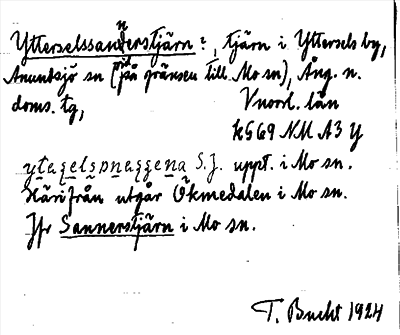 Ytterselssannerstjärn?, tjärn i Yttersels by,
Anundsjö sn (på gränsen till Mo sn), Ång. n.
doms. tg,
Vnorrl. län
kG69 NM A3 y
S.J. uppt. i Mo sn.
Härifrån utgår Økmedalen i Mo sn.
Jfr Sannerstjärn i Mo sn.
T. Bucht 1924